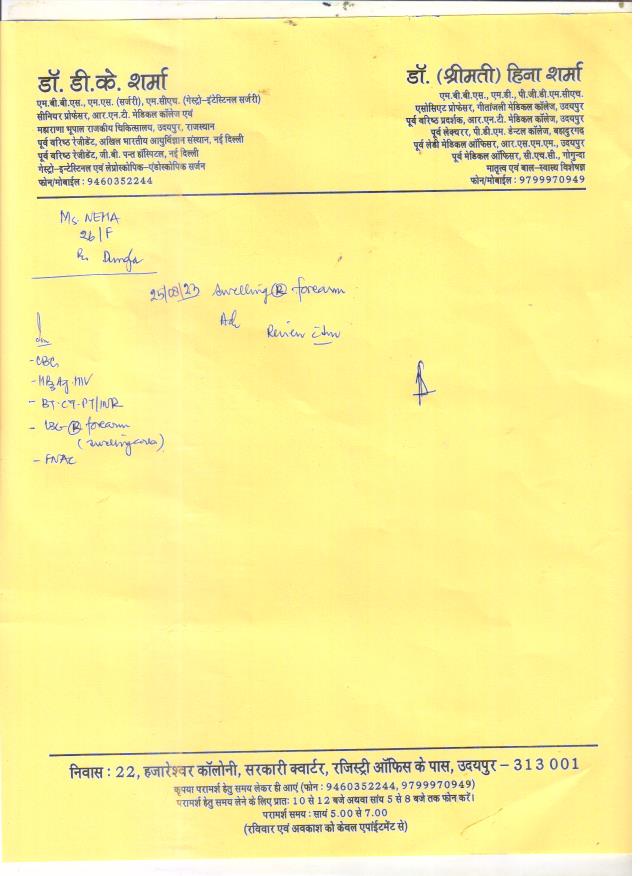 डॉ. डी.के. शर्मा
एम.बी.बी.एस., एम.एस. (सर्जरी), एम.सीएच. (गेस्ट्रो-इंटेस्टिनल सर्जरी)
सीनियर प्रोफेसर, आर.एन.टी. मेडिकल कॉलेज एवं
महाराणा भूपाल राजकीय चिकित्सालय, उदयपुर, राजस्थान
पूर्व वरिष्ठ रेजीडेंट, अखिल भारतीय आयुर्विज्ञान संस्थान, नई दिल्ली
पूर्व वरिष्ठ रेजीडेंट, जी.बी. पन्त हॉस्पिटल, नई दिल्ली
गेस्ट्रो-इन्टेस्टिनल एवं लेप्रोस्कोपिक-एंडोस्कोपिक सर्जन
फोन/मोबाईल : 9460352244
डॉ. (श्रीमती) हिना शर्मा
एम.बी.बी.एस., एम.डी., पी.जी.डी.एम.सीएच.
एसोसिएट प्रोफेसर, गीतांजली मेडिकल कॉलेज, उदयपुर
पूर्व वरिष्ठ प्रदर्शक, आर.एन.टी. मेडिकल कॉलेज, उदयपुर
पूर्व लेक्चरर, पी.डी.एम. डेन्टल कॉलेज, बहादुरगढ़
पूर्व लेडी मेडिकल ऑफिसर, आर.एस.एम.एम., उदयपुर
पूर्व मेडिकल ऑफिसर, सी.एच.सी., गोगुन्दा
मातृत्व एवं बाल-स्वास्थ्य विशेषज्ञ
फोन/मोबाईल : 9799970949
Ms. NEHA
26/F
25/08/23 swelling (R) forearm
Adv
Review
- CBC,
- HBsAg. HIV
- BT-CT-PT/INR
- USG (R) forearm
(swelling area)
- FNAC
निवास : 22, हजारेश्वर कॉलोनी, सरकारी क्वार्टर, रजिस्ट्री ऑफिस के पास, उदयपुर – 313 001
कृपया परामर्श हेतु समय लेकर ही आएं (फोन : 9460352244, 9799970949)
परामर्श हेतु समय लेने के लिए प्रातः 10 से 12 बजे अथवा सांय 5 से 8 बजे तक फोन करें।
परामर्श समय : सायं 5.00 से 7.00
(रविवार एवं अवकाश को केवल एपांईटमेंट से)